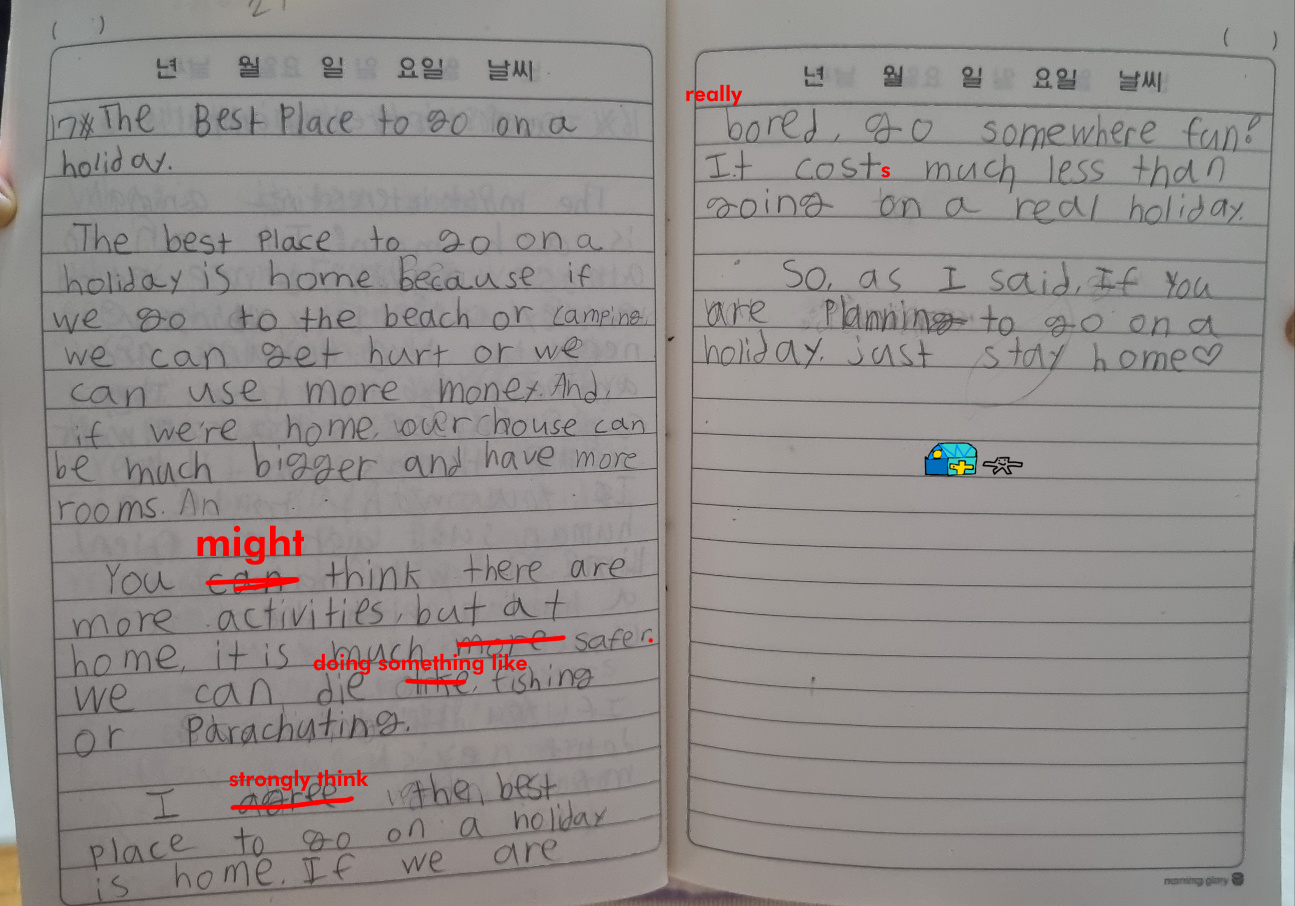 21
( )
년 월 일 요일 날씨
17※ The Best Place to go on a
holiday.
The best place to go on a
holiday is home because if
we go to the beach or camping,
we can get hurt or we
can use more money. And,
if we're home, our house can
be much bigger and have more
rooms. An
might
You can think there are
more activities, but at
home, it is much more safer.
doing something like
we can die fishing
or Parachuting.
strongly think
I agree the best
place to go on a holiday
is home. If we are
( )
년 월 일 요일 날씨
really
bored, go somewhere fun!
It costs much less than
going on a real holiday.
So, as I said, If you
are Planning to go on a
holiday, just stay home♡
morning glory